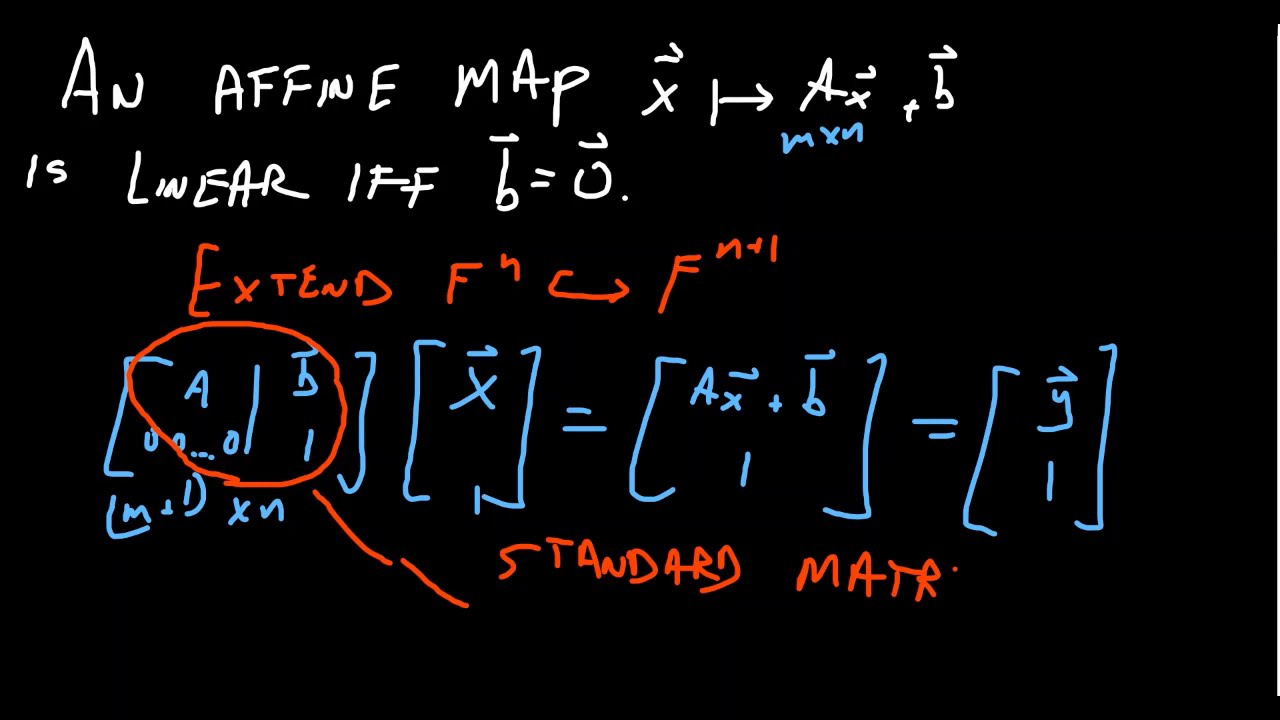 AN AFFINE MAP x⃗ ↦ Ax⃗ + b⃗
m×n
IS LINEAR IFF b⃗ = 0⃗.
EXTEND Fⁿ ↪ Fⁿ⁺¹
[A | b⃗] [x⃗] = [Ax⃗ + b⃗] = [y⃗]
[0 0 ... 0 | 1] [1] [1] [1]
(m+1) × n
STANDARD MATR